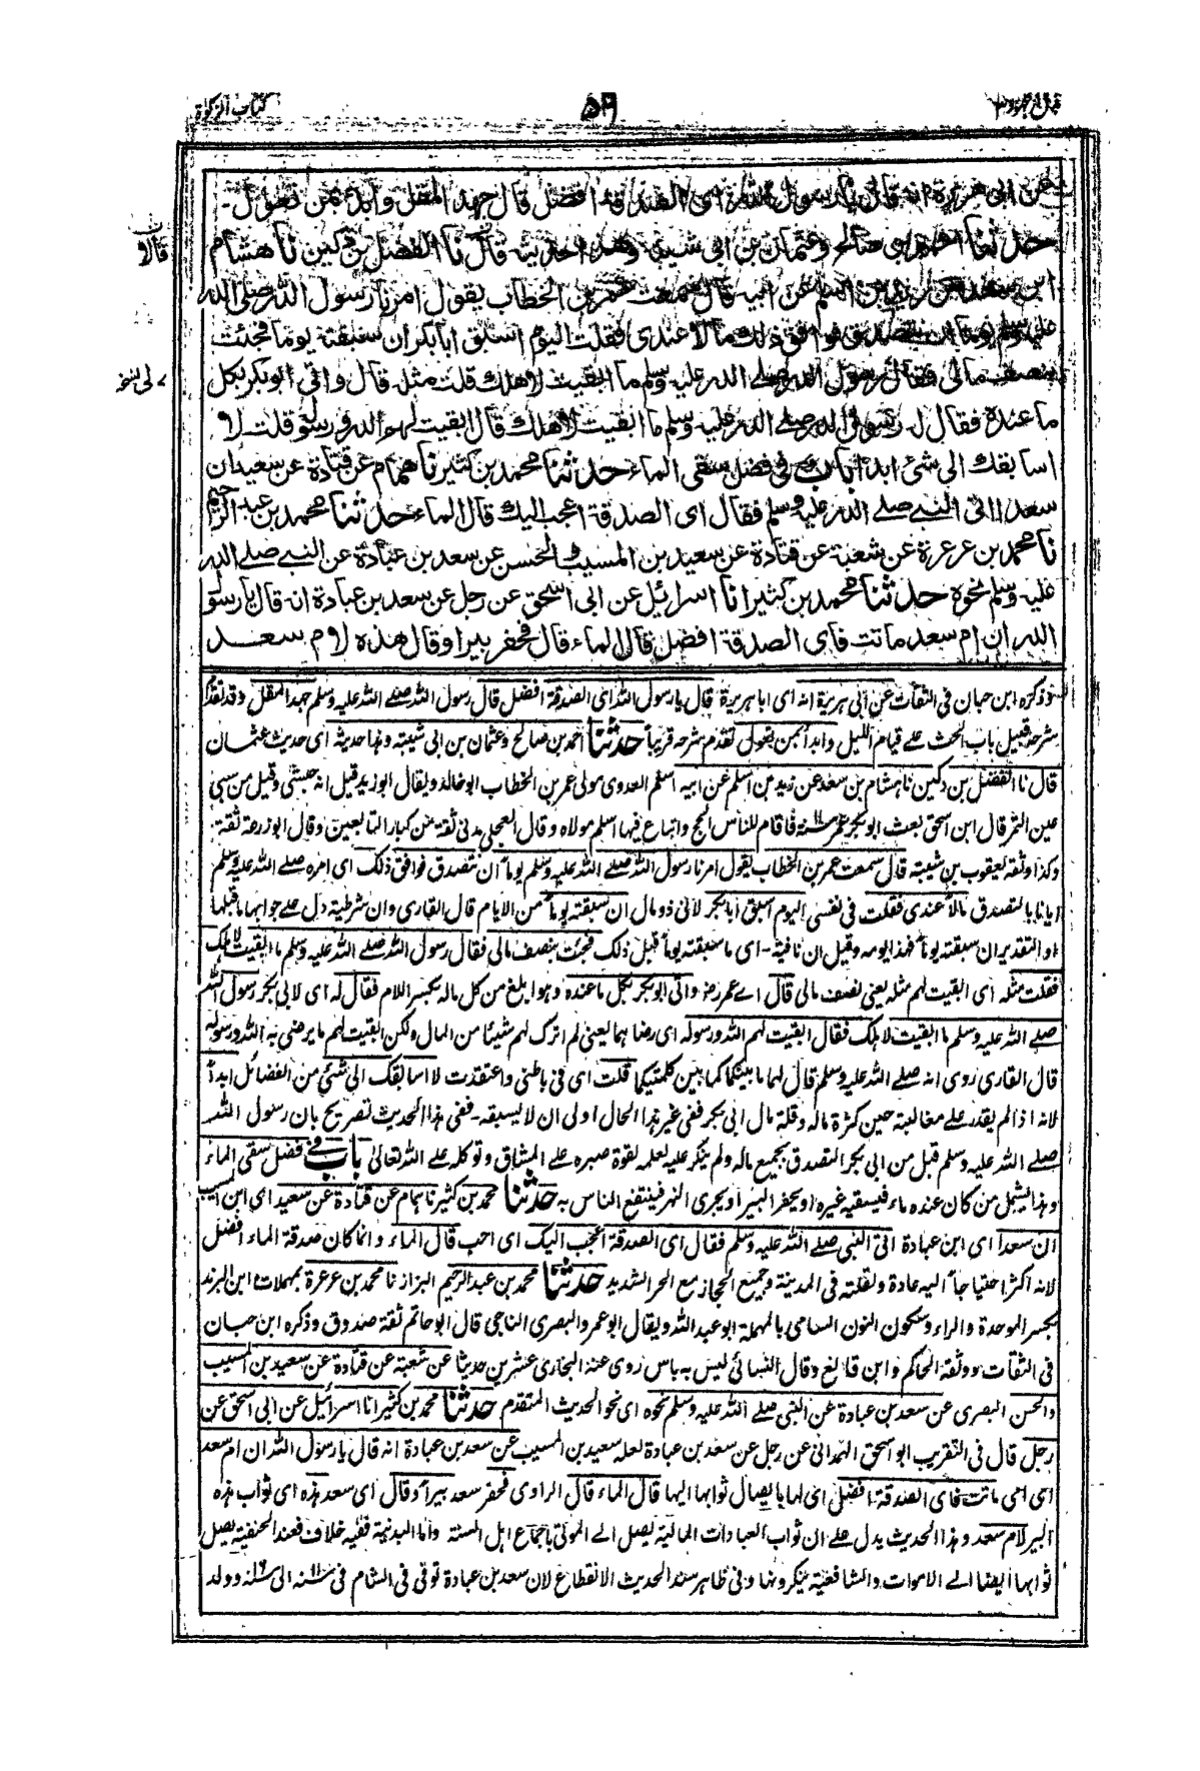 كتاب الزكوة
٥٩
بذل المجهود ٣
عن ابى هريرة انه قال يا رسول الله اى الصدقة افضل قال جهد المقل وابدء بمن تعول
حدثنا احمد بن صالح وعثمان بن ابى شيبة وهذا حديثه قال نا الفضل بن دكين نا هشام
قالا
ابن سعد عن زيد بن اسلم عن ابيه قال سمعت عمر بن الخطاب يقول امرنا رسول الله صلى الله
عليه وسلم يوما ان نتصدق فوافق ذلك مالا عندى فقلت اليوم اسبق ابابكر ان سبقته يوما فجئت
بنصف مالى فقال رسول الله صلے الله عليه وسلم ما ابقيت لاهلك قلت مثله قال واتى ابوبكر بكل
ما عنده فقال له رسول الله صلے الله عليه وسلم ما ابقيت لاهلك قال ابقيت لهم الله ورسوله قلت لا
اسابقك الى شئ ابدا باب فى فضل سقى الماء حدثنا محمد بن كثير نا همام عن قتادة عن سعيد ان
سعدا اتى النبے صلے الله عليه وسلم فقال اى الصدقة اعجب اليك قال الماء حدثنا محمد بن عبد الرحيم
نا محمد بن عرعرة عن شعبة عن قتادة عن سعيد بن المسيب والحسن عن سعد بن عبادة عن النبے صلے الله
عليه وسلم نحوه حدثنا محمد بن كثير انا اسرائيل عن ابى اسحق عن رجل عن سعد بن عبادة انه قال يا رسول
الله ان ام سعد ماتت فاى الصدقة افضل قال الماء قال فحفر بيرا وقال هذه لام سعد
وذكره ابن حبان فى الثقات عن ابى هريرة انه اى ابا هريرة قال يا رسول الله اى الصدقة افضل قال رسول الله صلے الله عليه وسلم جهد المقل وقد تقدم
شرحه قبيل باب الحث علے قيام الليل وابدأ بمن يعول تقدم شرحه قريباً حدثنا احمد بن صالح وعثمان بن ابى شيبة وهذا حديثه اى حديث عثمان
قال نا الفضل بن دكين نا هشام بن سعد عن زيد بن اسلم عن ابيه اسلم العدوى مولى عمر بن الخطاب ابو خالد ويقال ابو زيد قيل انه حبشى وقيل من سبى
عين التمر قال ابن اسحق بعث ابو بكر عمر سنة ١١ فاقام للناس الحج وابتاع فيها اسلم مولاه وقال العجلى مدنى ثقة من كبار التابعين وقال ابو زرعة ثقة
وكذا وثقه يعقوب بن شيبة قال سمعت عمر بن الخطاب يقول امرنا رسول الله صلے الله عليه وسلم يوماً ان نتصدق فوافق ذلك اى امره صلے الله عليه وسلم
ايانا بالتصدق مالاً عندى فقلت فى نفسى اليوم اسبق ابا بكر لانى ذو مال ان سبقته يوماً من الايام قال القارى وان شرطية دل علے جوابها ما قبلها
او التقدير ان سبقته يوماً فهذا يومه وقيل ان نافية - اى ما سبقته يوماً قبل ذلك فجئت بنصف مالى فقال رسول الله صلے الله عليه وسلم ما ابقيت لاهلك
فقلت مثله اى ابقيت لهم مثله يعنى نصف مالى قال اے عمر رض واتى ابو بكر بكل ما عنده وهو ابلغ من كل ماله بكسر اللام فقال له اى لابى بكر رسول الله
صلے الله عليه وسلم ما ابقيت لاهلك فقال ابقيت لهم الله ورسوله اى رضا هما يعنى لم اترك لهم شيئا من المال ولكن ابقيت لهم ما يرضى به الله ورسوله
قال القارى روى انه صلے الله عليه وسلم قال لهما ما بينكما كما بين كلمتيكما قلت اى فى باطنى واعتقدت لا اسابقك الى شئ من الفضائل ابداً
لانه اذا لم يقدر علے مغالبته حين كثرة ماله وقلة مال ابى بكر ففى غير هذا الحال اولى ان لا يسبقه - ففى هذا الحديث تصريح بان رسول الله
صلے الله عليه وسلم قبل من ابى بكر التصدق بجميع ماله ولم ينكر عليه لعلمه لقوة صبره علے المشاق وتوكله علے الله تعالى باب فے فضل سقى الماء
وهذا يشمل من كان عنده ماء فيسقيه غيره او يحفر البير او يجرى النهر فينتفع الناس به حدثنا محمد بن كثير نا همام عن قتادة عن سعيد اى ابن المسيب
ان سعداً اى ابن عبادة اتى النبى صلے الله عليه وسلم فقال اى الصدقة اعجب اليك اى احب قال الماء وانما كان صدقة الماء افضل
لانه اكثر احتياجاً اليه عادة ولقلته فى المدينة وجميع الحجاز مع الحر الشديد حدثنا محمد بن عبد الرحيم البزاز نا محمد بن عرعرة بمهملات ابن البرند
بكسر الموحدة والراء وسكون النون السامى بالمهملة ابو عبد الله ويقال ابو عمرو البصرى الناجى قال ابو حاتم ثقة صدوق وذكره ابن حبان
فى الثقات ووثقه الحاكم وابن قانع وقال النسائى ليس به باس روى عنه البخارى عشرين حديثا عن شعبة عن قتادة عن سعيد بن المسيب
والحسن البصرى عن سعد بن عبادة عن النبى صلے الله عليه وسلم نحوه اى نحو الحديث المتقدم حدثنا محمد بن كثير انا اسرائيل عن ابى اسحق عن
رجل قال فى التقريب ابو اسحق الهمدانى عن رجل عن سعد بن عبادة لعله سعيد بن المسيب عن سعد بن عبادة انه قال يا رسول الله ان ام سعد
اى امى ماتت فاى الصدقة افضل اى لها بايصال ثوابها اليها قال الماء قال الراوى فحفر سعد بيراً وقال اى سعد هذه اى ثواب هذه
البير لام سعد وهذا الحديث يدل علے ان ثواب العبادات المالية يصل الے الموتى باجماع اهل السنة واما البدنية ففيه خلاف فعند الحنفية يصل
ثوابها ايضا الے الاموات والشافعية ينكرونها وفى ظاهر سند الحديث الانقطاع لان سعد بن عبادة توفى فى الشام فى سنة الى سنة وولد